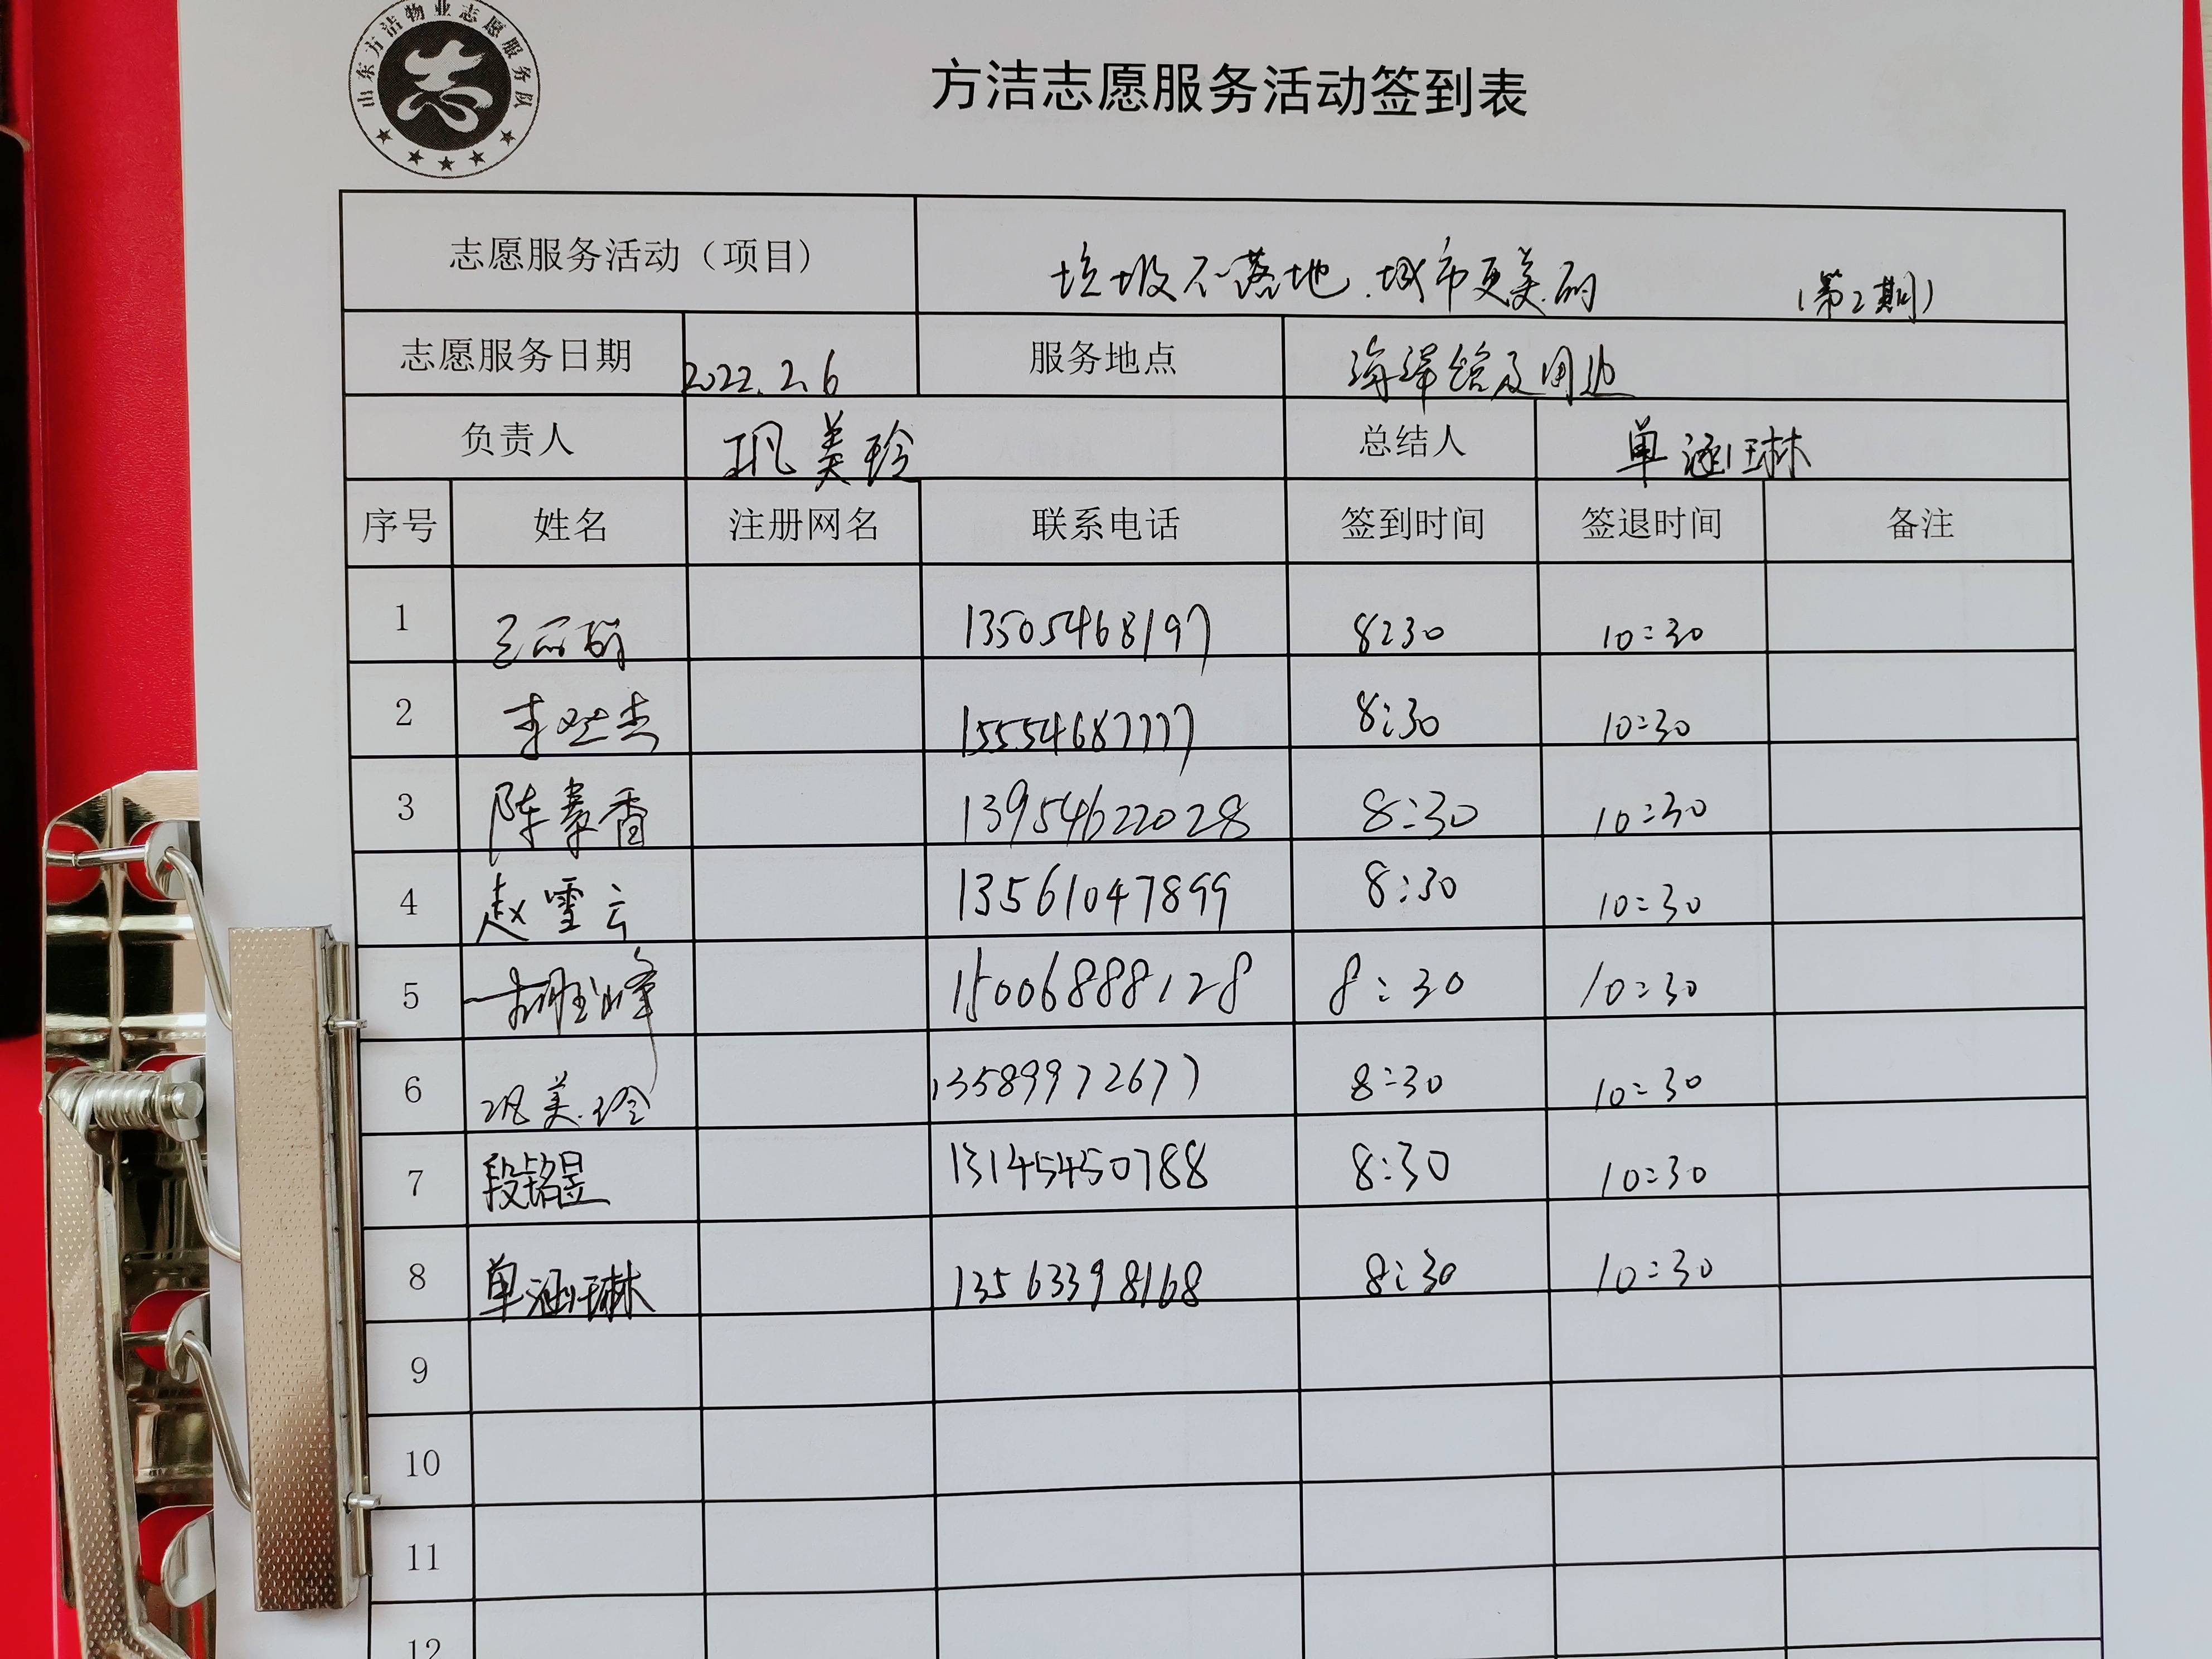 山东方洁物业志愿服务队
志
方洁志愿服务活动签到表
志愿服务活动（项目） 垃圾不落地.城市更美丽 （第2期）
志愿服务日期 2022.2.6 服务地点 海洋馆及周边
负责人 巩美玲 总结人 单涵琳
序号 姓名 注册网名 联系电话 签到时间 签退时间 备注
1 13505468197 8:30 10:30
2 15554687777 8:30 10:30
3 陈秦香 13954622028 8:30 10:30
4 赵雪云 13561047899 8:30 10:30
5 胡峰 15006888128 8:30 10:30
6 巩美玲 13589972677 8:30 10:30
7 段铭昱 13145450788 8:30 10:30
8 单涵琳 13563398168 8:30 10:30
9
10
11
12